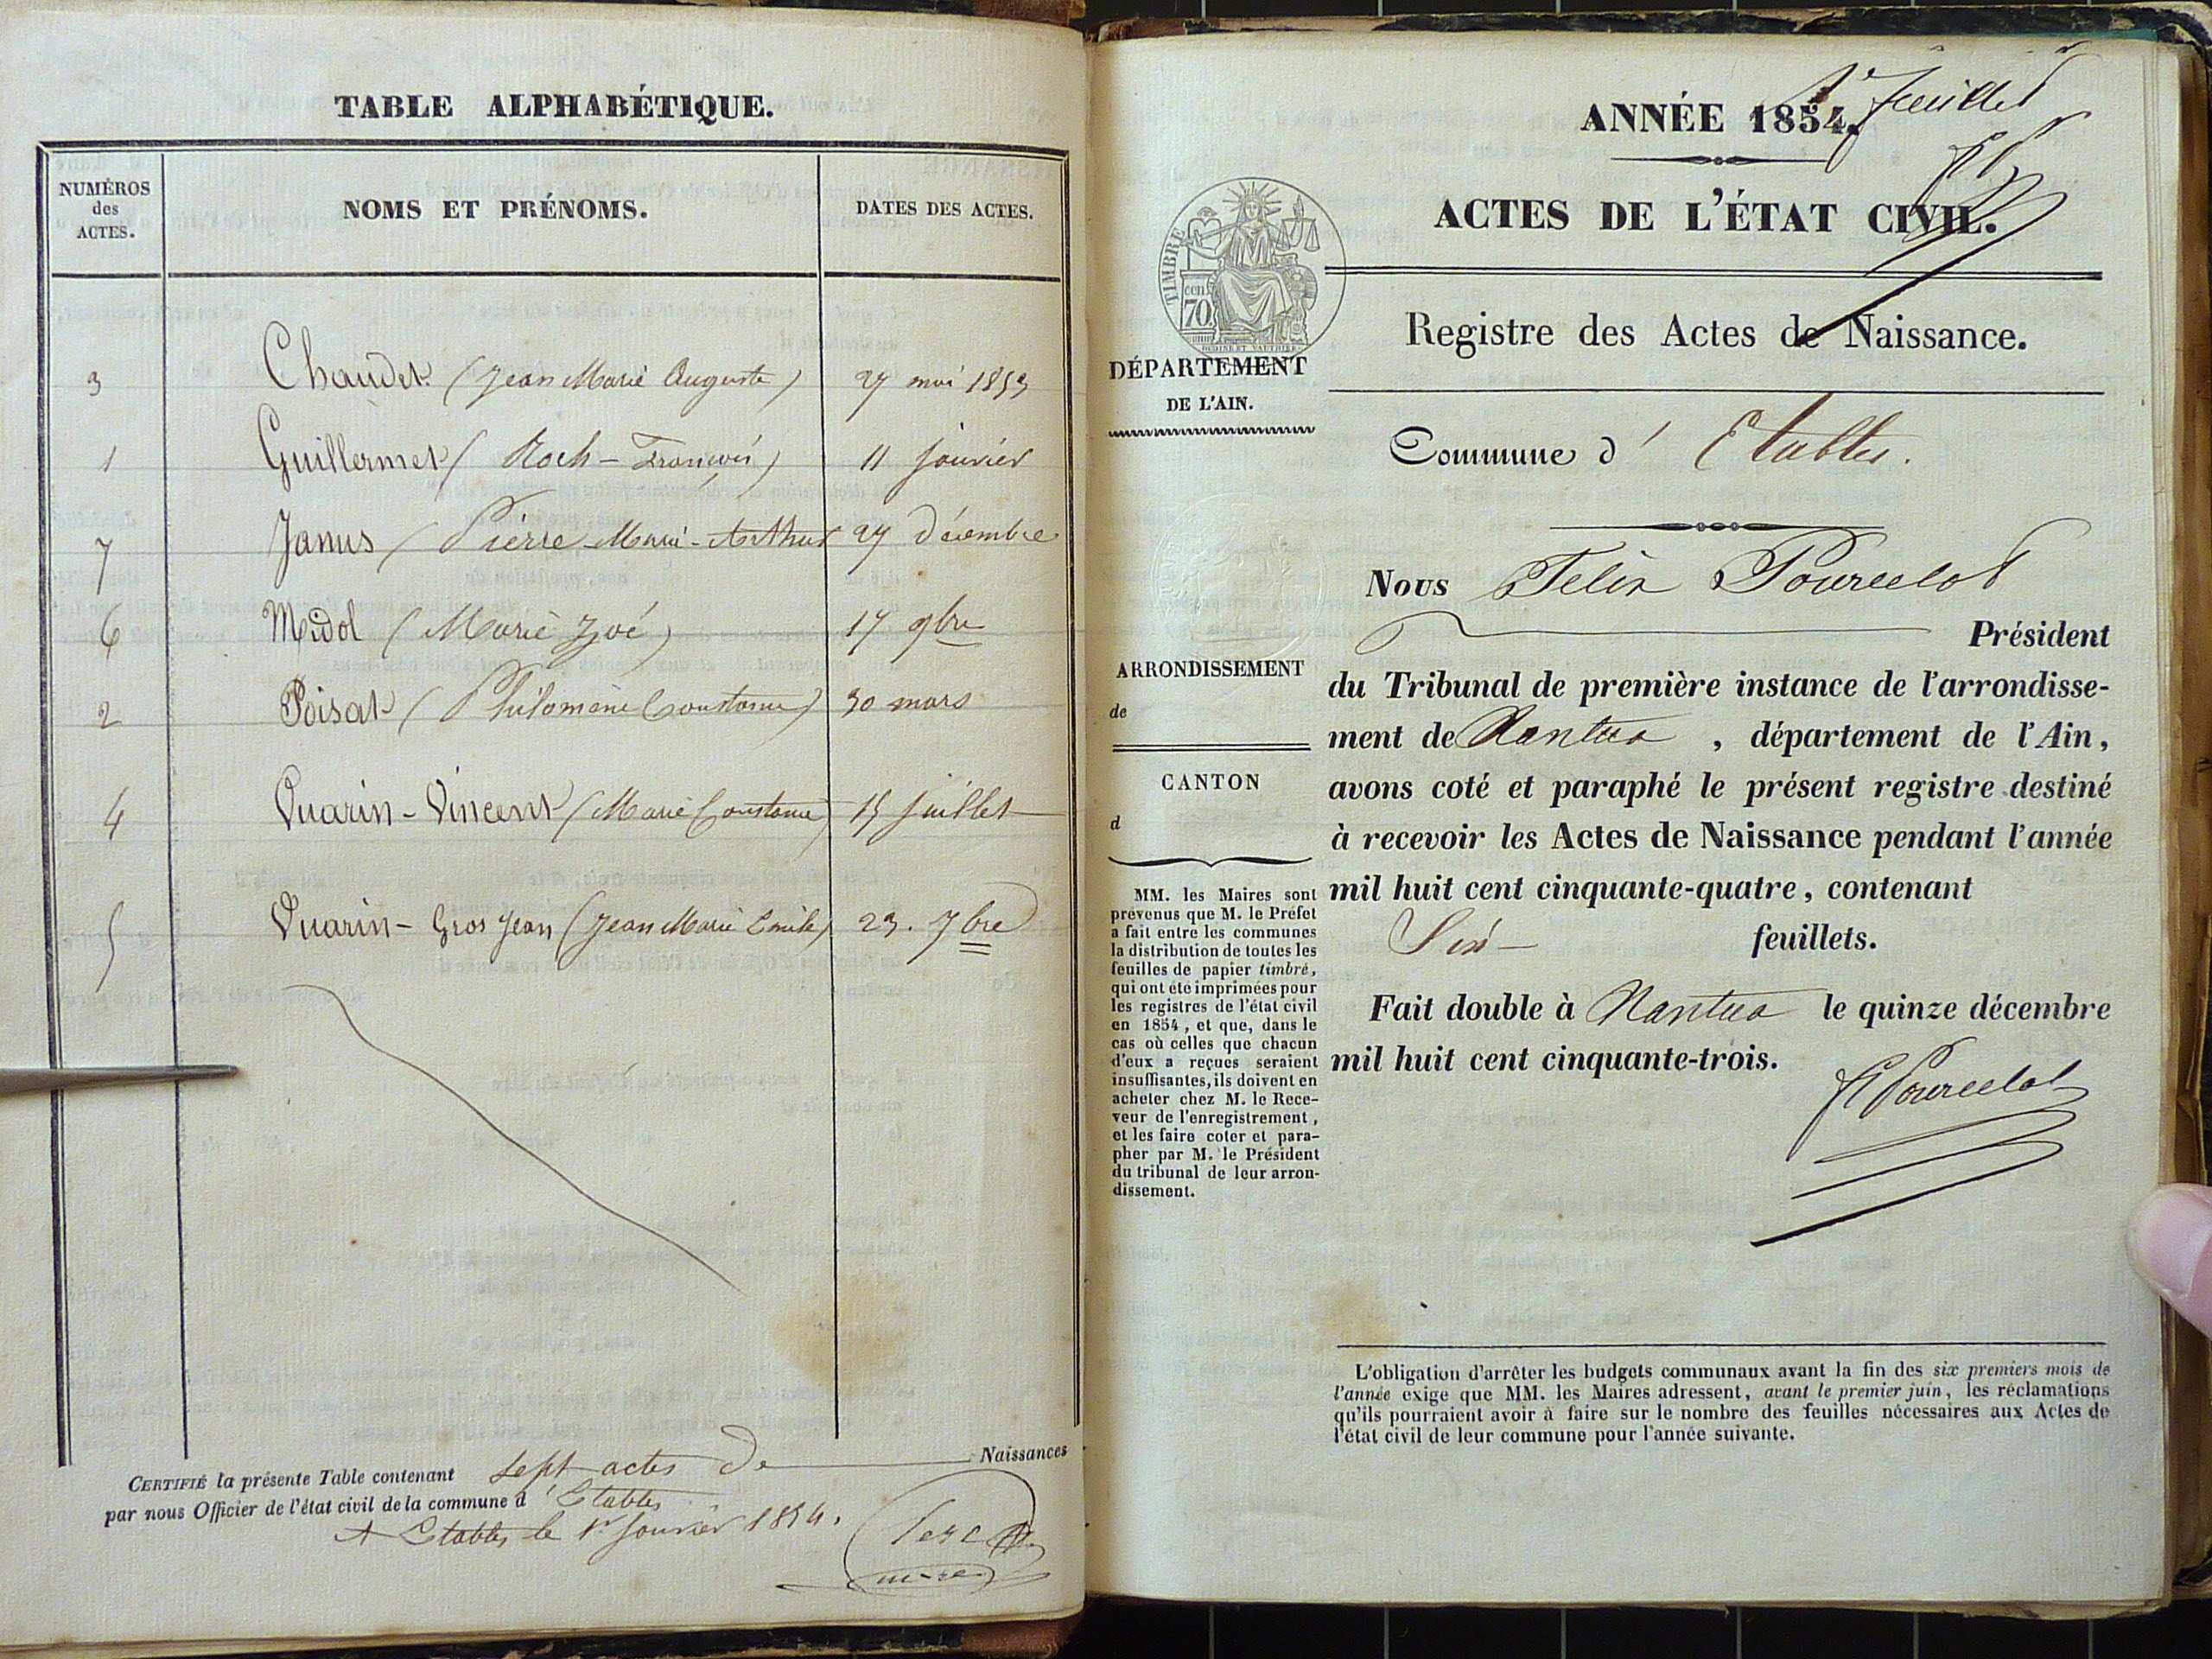 TABLE ALPHABÉTIQUE.
NUMÉROS
des
ACTES.
NOMS ET PRÉNOMS.
DATES DES ACTES.
3 Chaudet (Jean Marie Auguste) 27 mai 1853
1 Guillermet (Roch-François) 11 janvier
7 Janus (Pierre-Marie-Arthur 27 Décembre
6 Midol (Marie Zoé) 17 9bre
2 Poisat (Philomène Constance) 30 mars
4 Vuarin-Vincent (Marie Constance) 15 juillet
5 Vuarin-Gros Jean (Jean Marie Emile) 23. 7bre
CERTIFIÉ la présente Table contenant sept actes de Naissances
par nous Officier de l'état civil de la commune d'Etables
A Etables le 1er Janvier 1854.
1er feuillet
ANNÉE 1854.
ACTES DE L'ÉTAT CIVIL.
Registre des Actes de Naissance.
TIMBRE
cen
70
DÉPARTEMENT
DE L'AIN.
ARRONDISSEMENT
de
CANTON
d
MM. les Maires sont
prévenus que M. le Préfet
a fait entre les communes
la distribution de toutes les
feuilles de papier timbré,
qui ont été imprimées pour
les registres de l'état civil
en 1854, et que, dans le
cas où celles que chacun
d'eux a reçues seraient
insuffisantes, ils doivent en
acheter chez M. le Rece-
veur de l'enregistrement,
et les faire coter et para-
pher par M. le Président
du tribunal de leur arron-
dissement.
Commune d'Etables.
Nous Felix Pourcelot
Président
du Tribunal de première instance de l'arrondisse-
ment de Nantua, département de l'Ain,
avons coté et paraphé le présent registre destiné
à recevoir les Actes de Naissance pendant l'année
mil huit cent cinquante-quatre, contenant
Six feuillets.
Fait double à Nantua le quinze décembre
mil huit cent cinquante-trois.
F Pourcelot
L'obligation d'arrêter les budgets communaux avant la fin des six premiers mois de
l'année exige que MM. les Maires adressent, avant le premier juin, les réclamations
qu'ils pourraient avoir à faire sur le nombre des feuilles nécessaires aux Actes de
l'état civil de leur commune pour l'année suivante.